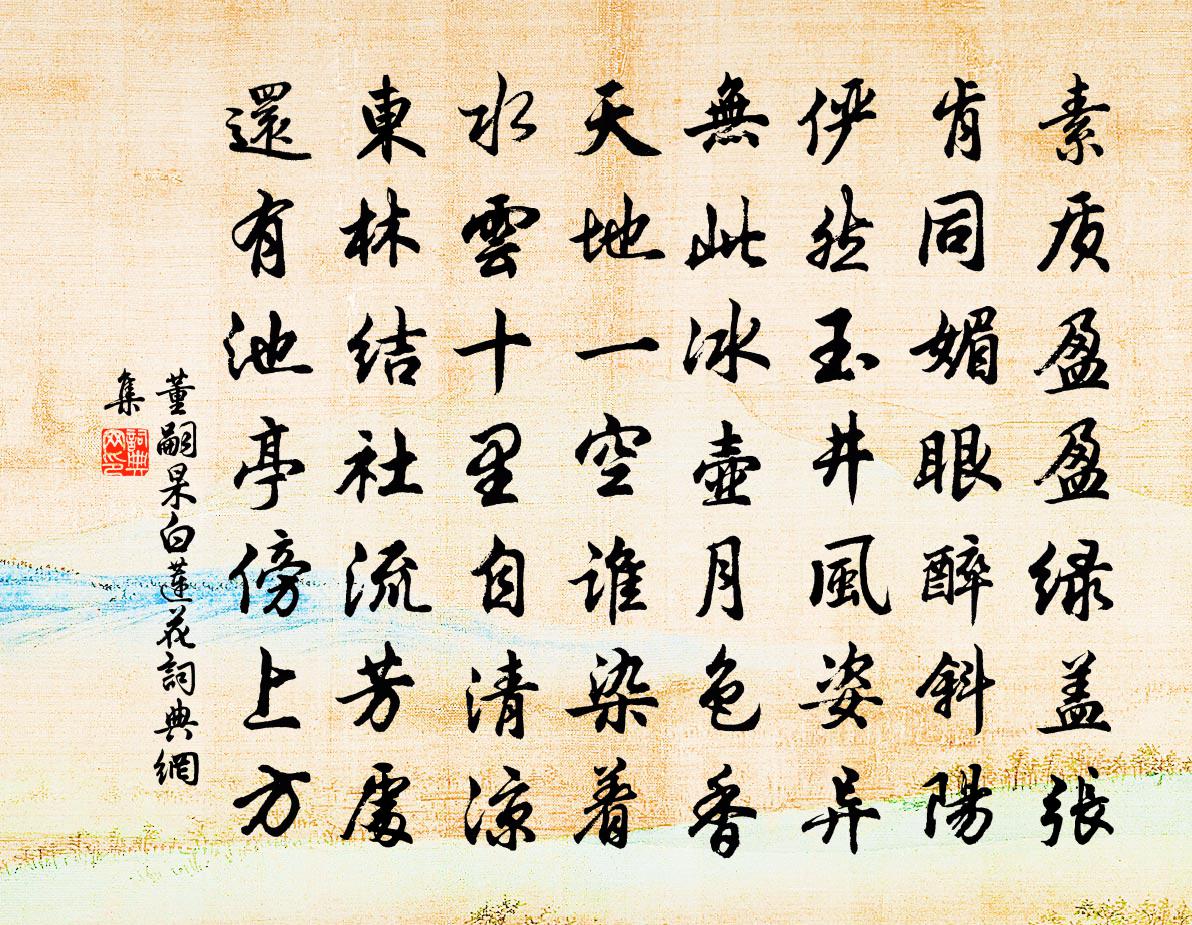 素质盈盈绿盖張
肯同媚眼醉斜陽
俨然玉井風姿异
無此冰壺月色香
天地一空谁染着
水雲十里自清凉
東林结社流芳處
還有池亭傍上方
董嗣杲白莲花詞典網
集
詞典網印